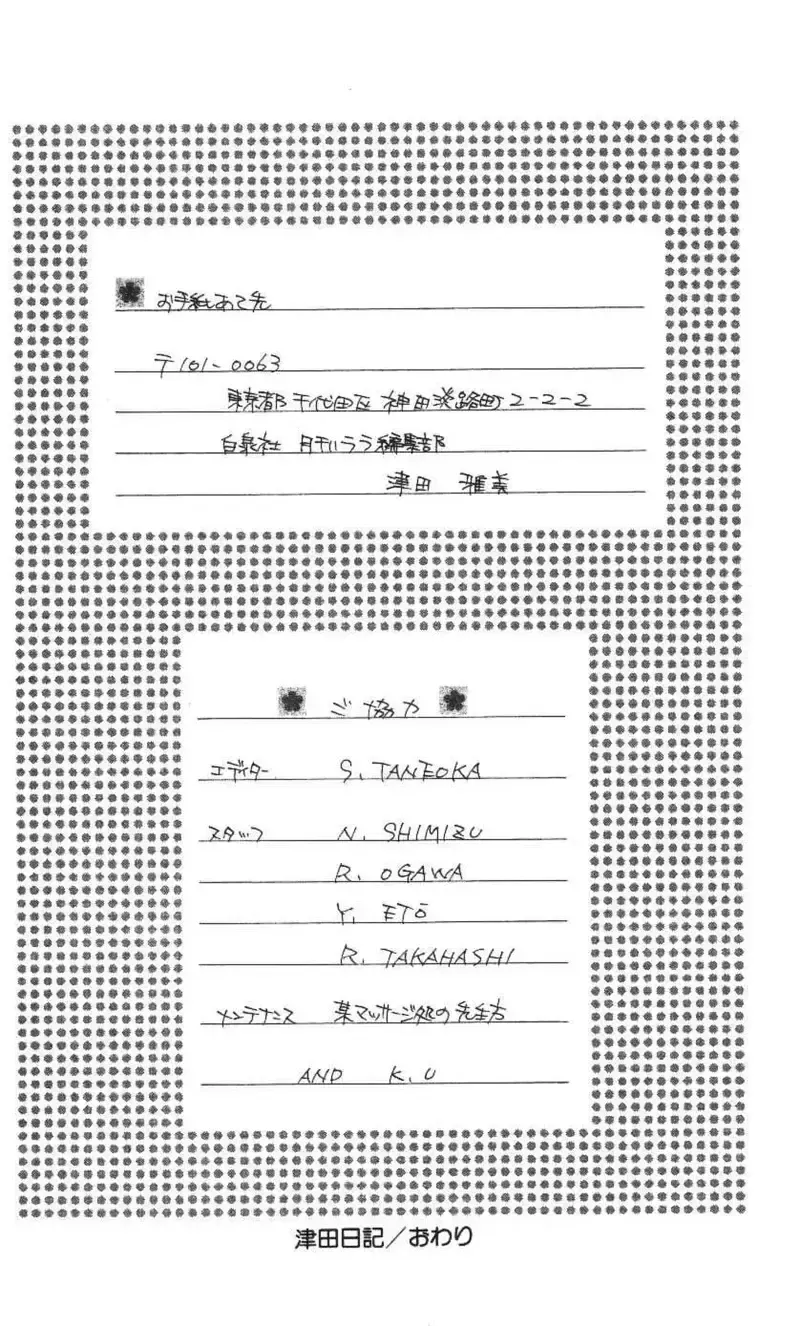 お手紙あて先
〒101-0063
東京都千代田区神田淡路町2-2-2
白泉社 月刊ララ編集部
津田 雅美
ご協力
エディター S. TANEOKA
スタッフ N. SHIMIZU
R. OGAWA
Y. ETŌ
R. TAKAHASHI
メンテナンス 某マッサージ処の先生方
AND K.U
津田日記／おわり